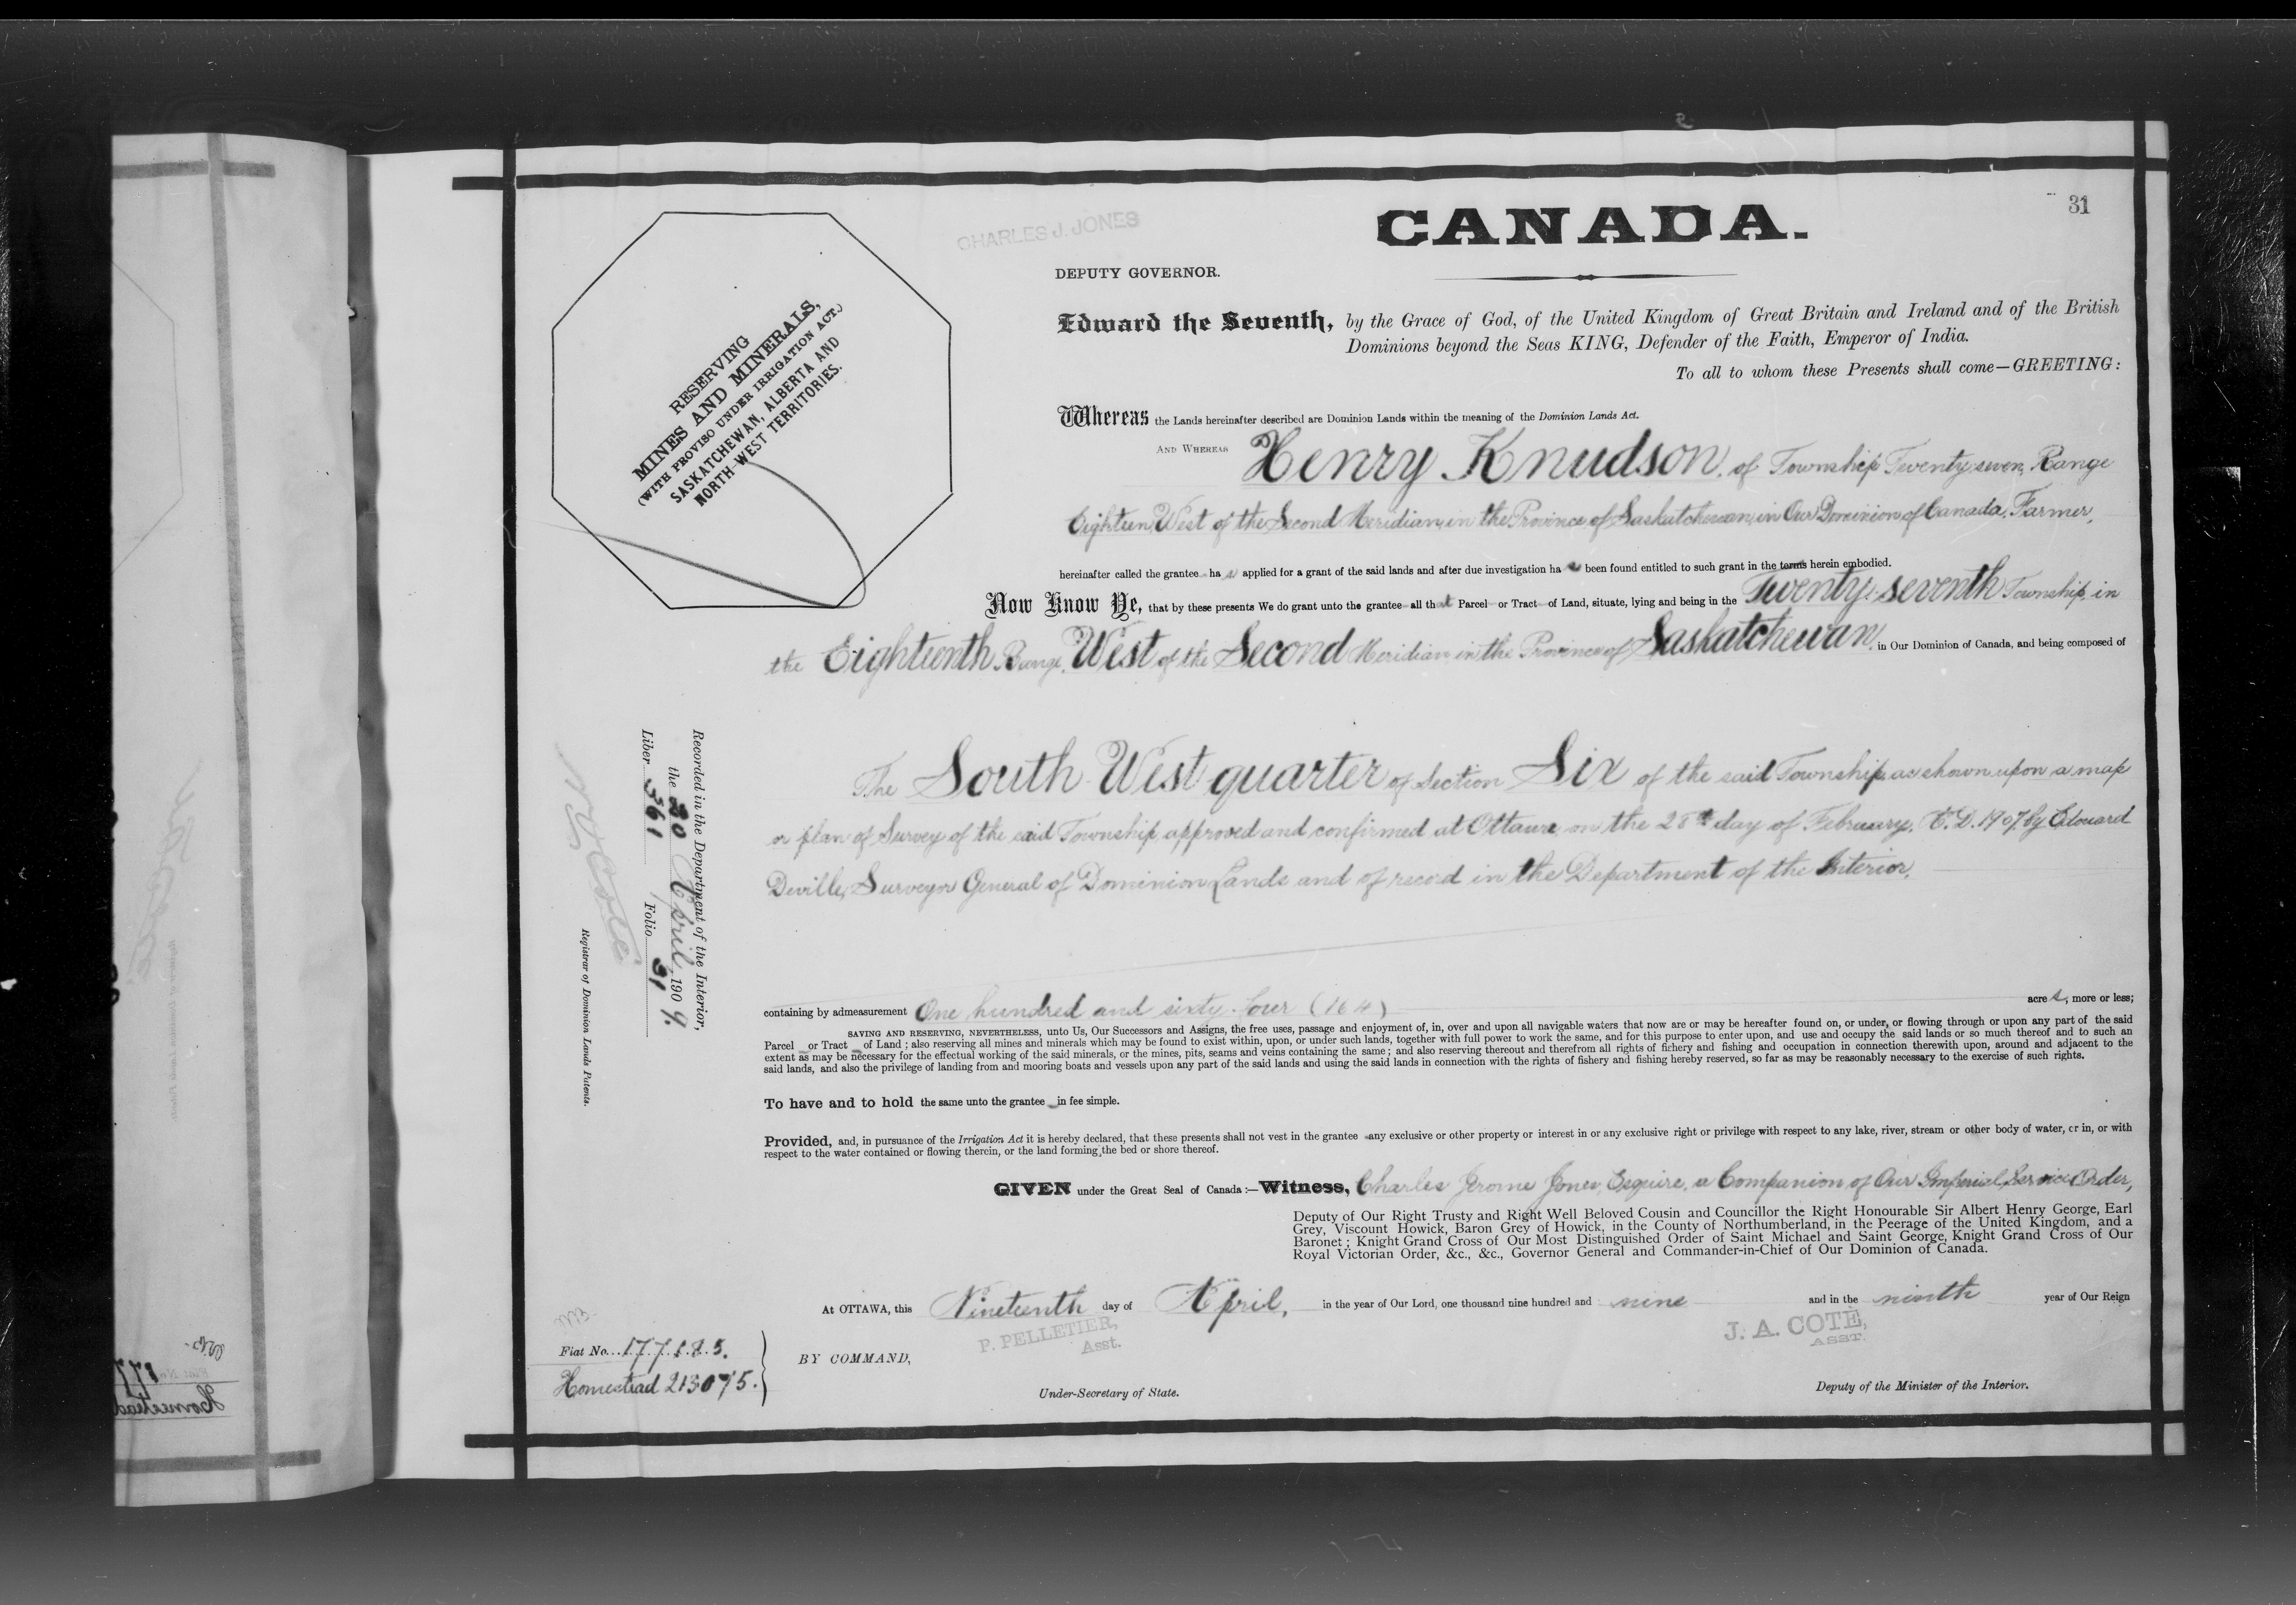 31
CHARLES J. JONES
CANADA.
DEPUTY GOVERNOR.
Edward the Seventh, by the Grace of God, of the United Kingdom of Great Britain and Ireland and of the British
Dominions beyond the Seas KING, Defender of the Faith, Emperor of India.
To all to whom these Presents shall come—GREETING:
RESERVING
MINES AND MINERALS,
(WITH PROVISO UNDER IRRIGATION ACT.)
SASKATCHEWAN, ALBERTA AND
NORTH WEST TERRITORIES.
Whereas the Lands hereinafter described are Dominion Lands within the meaning of the Dominion Lands Act.
AND WHEREAS Henry Knudson, of Township Twenty seven, Range
Eighteen, West of the Second Meridian, in the Province of Saskatchewan, in Our Dominion of Canada, Farmer,
hereinafter called the grantee has applied for a grant of the said lands and after due investigation has been found entitled to such grant in the terms herein embodied.
Now Know Ye, that by these presents We do grant unto the grantee all that Parcel or Tract of Land, situate, lying and being in the Twenty-seventh Township, in
the Eighteenth Range, West of the Second Meridian in the Province of Saskatchewan, in Our Dominion of Canada, and being composed of
The South West quarter of Section Six of the said Township, as shown upon a map
or plan of Survey of the said Township, approved and confirmed at Ottawa on the 28th day of February, A.D. 1907, by Edouard
Deville, Surveyor General of Dominion Lands and of record in the Department of the Interior.
containing by admeasurement One hundred and sixty-four (164) acres, more or less;
SAVING AND RESERVING, NEVERTHELESS, unto Us, Our Successors and Assigns, the free uses, passage and enjoyment of, in, over and upon all navigable waters that now are or may be hereafter found on, or under, or flowing through or upon any part of the said
Parcel or Tract of Land; also reserving all mines and minerals which may be found to exist within, upon, or under such lands, together with full power to work the same, and for this purpose to enter upon, and use and occupy the said lands or so much thereof and to such an
extent as may be necessary for the effectual working of the said minerals, or the mines, pits, seams and veins containing the same; and also reserving thereout and therefrom all rights of fishery and fishing and occupation in connection therewith upon, around and adjacent to the
said lands, and also the privilege of landing from and mooring boats and vessels upon any part of the said lands and using the said lands in connection with the rights of fishery and fishing hereby reserved, so far as may be reasonably necessary to the exercise of such rights.
To have and to hold the same unto the grantee in fee simple.
Provided, and, in pursuance of the Irrigation Act it is hereby declared, that these presents shall not vest in the grantee any exclusive or other property or interest in or any exclusive right or privilege with respect to any lake, river, stream or other body of water, or in, or with
respect to the water contained or flowing therein, or the land forming the bed or shore thereof.
GIVEN under the Great Seal of Canada:—Witness, Charles Jerome Jones, Esquire, a Companion of Our Imperial Service Order,
Deputy of Our Right Trusty and Right Well Beloved Cousin and Councillor the Right Honourable Sir Albert Henry George, Earl
Grey, Viscount Howick, Baron Grey of Howick, in the County of Northumberland, in the Peerage of the United Kingdom, and a
Baronet; Knight Grand Cross of Our Most Distinguished Order of Saint Michael and Saint George, Knight Grand Cross of Our
Royal Victorian Order, &c., &c., Governor General and Commander-in-Chief of Our Dominion of Canada.
At OTTAWA, this Nineteenth day of April, in the year of Our Lord, one thousand nine hundred and nine and in the ninth year of Our Reign
P. PELLETIER,
Asst.
J. A. COTÉ,
ASST.
BY COMMAND,
Under-Secretary of State.
Deputy of the Minister of the Interior.
Fiat No. 177185.
Homestead 213075.
Recorded in the Department of the Interior,
the 20 April, 1909.
Liber 361 Folio 31
N. O. Coté
Registrar of Dominion Lands Patents.